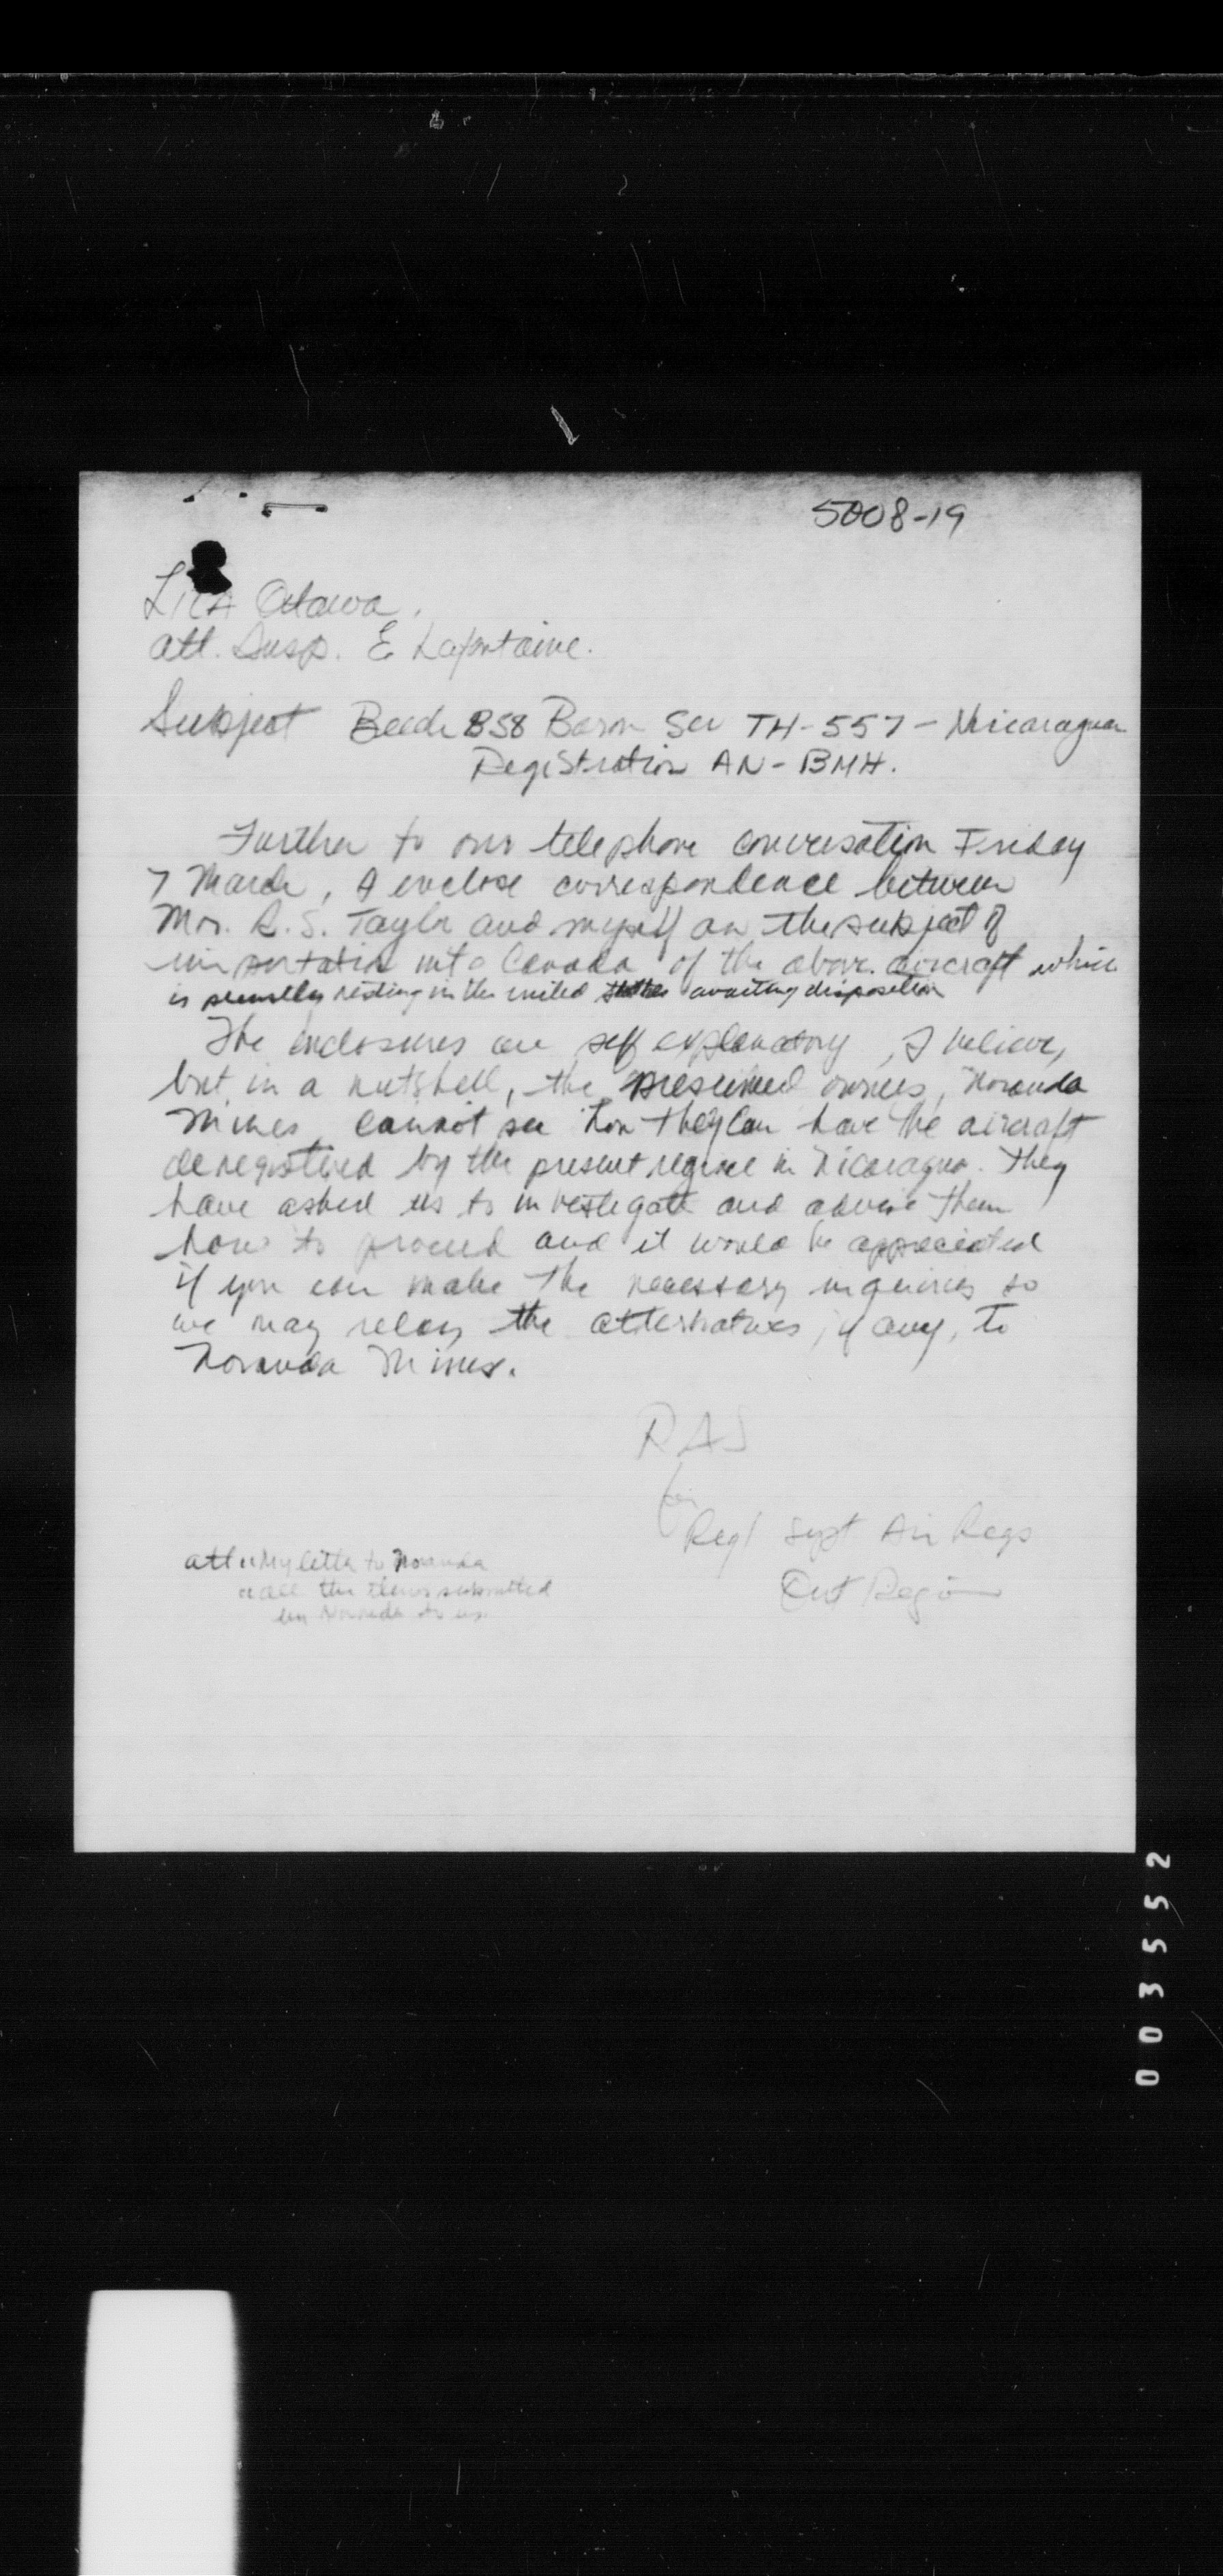 5008-19
Ottawa.
att. Insp. E Lafontaine.
Subject Beech B58 Baron Ser TH-557 - Nicaraguan
Registration AN-BMH.
Further to our telephone conversation Friday
7 March, I enclose correspondence between
Mr. R.S. Taylor and myself on the subject of
importation into Canada of the above aircraft which
is presently resting in the united states awaiting disposition
The enclosures are self explanatory, I believe,
but in a nutshell, the presumed owners, Noranda
Mines, cannot see how they can have the aircraft
deregistered by the present regime in Nicaragua. They
have asked us to investigate and advise them
how to proceed and it would be appreciated
if you can make the necessary inquiries so
we may relay the alternatives, if any, to
Noranda Mines.
RAS
for
Regl Supt Air Regs
Ont Region
att My letter to Noranda
all the items submitted
by Noranda to us.
003552